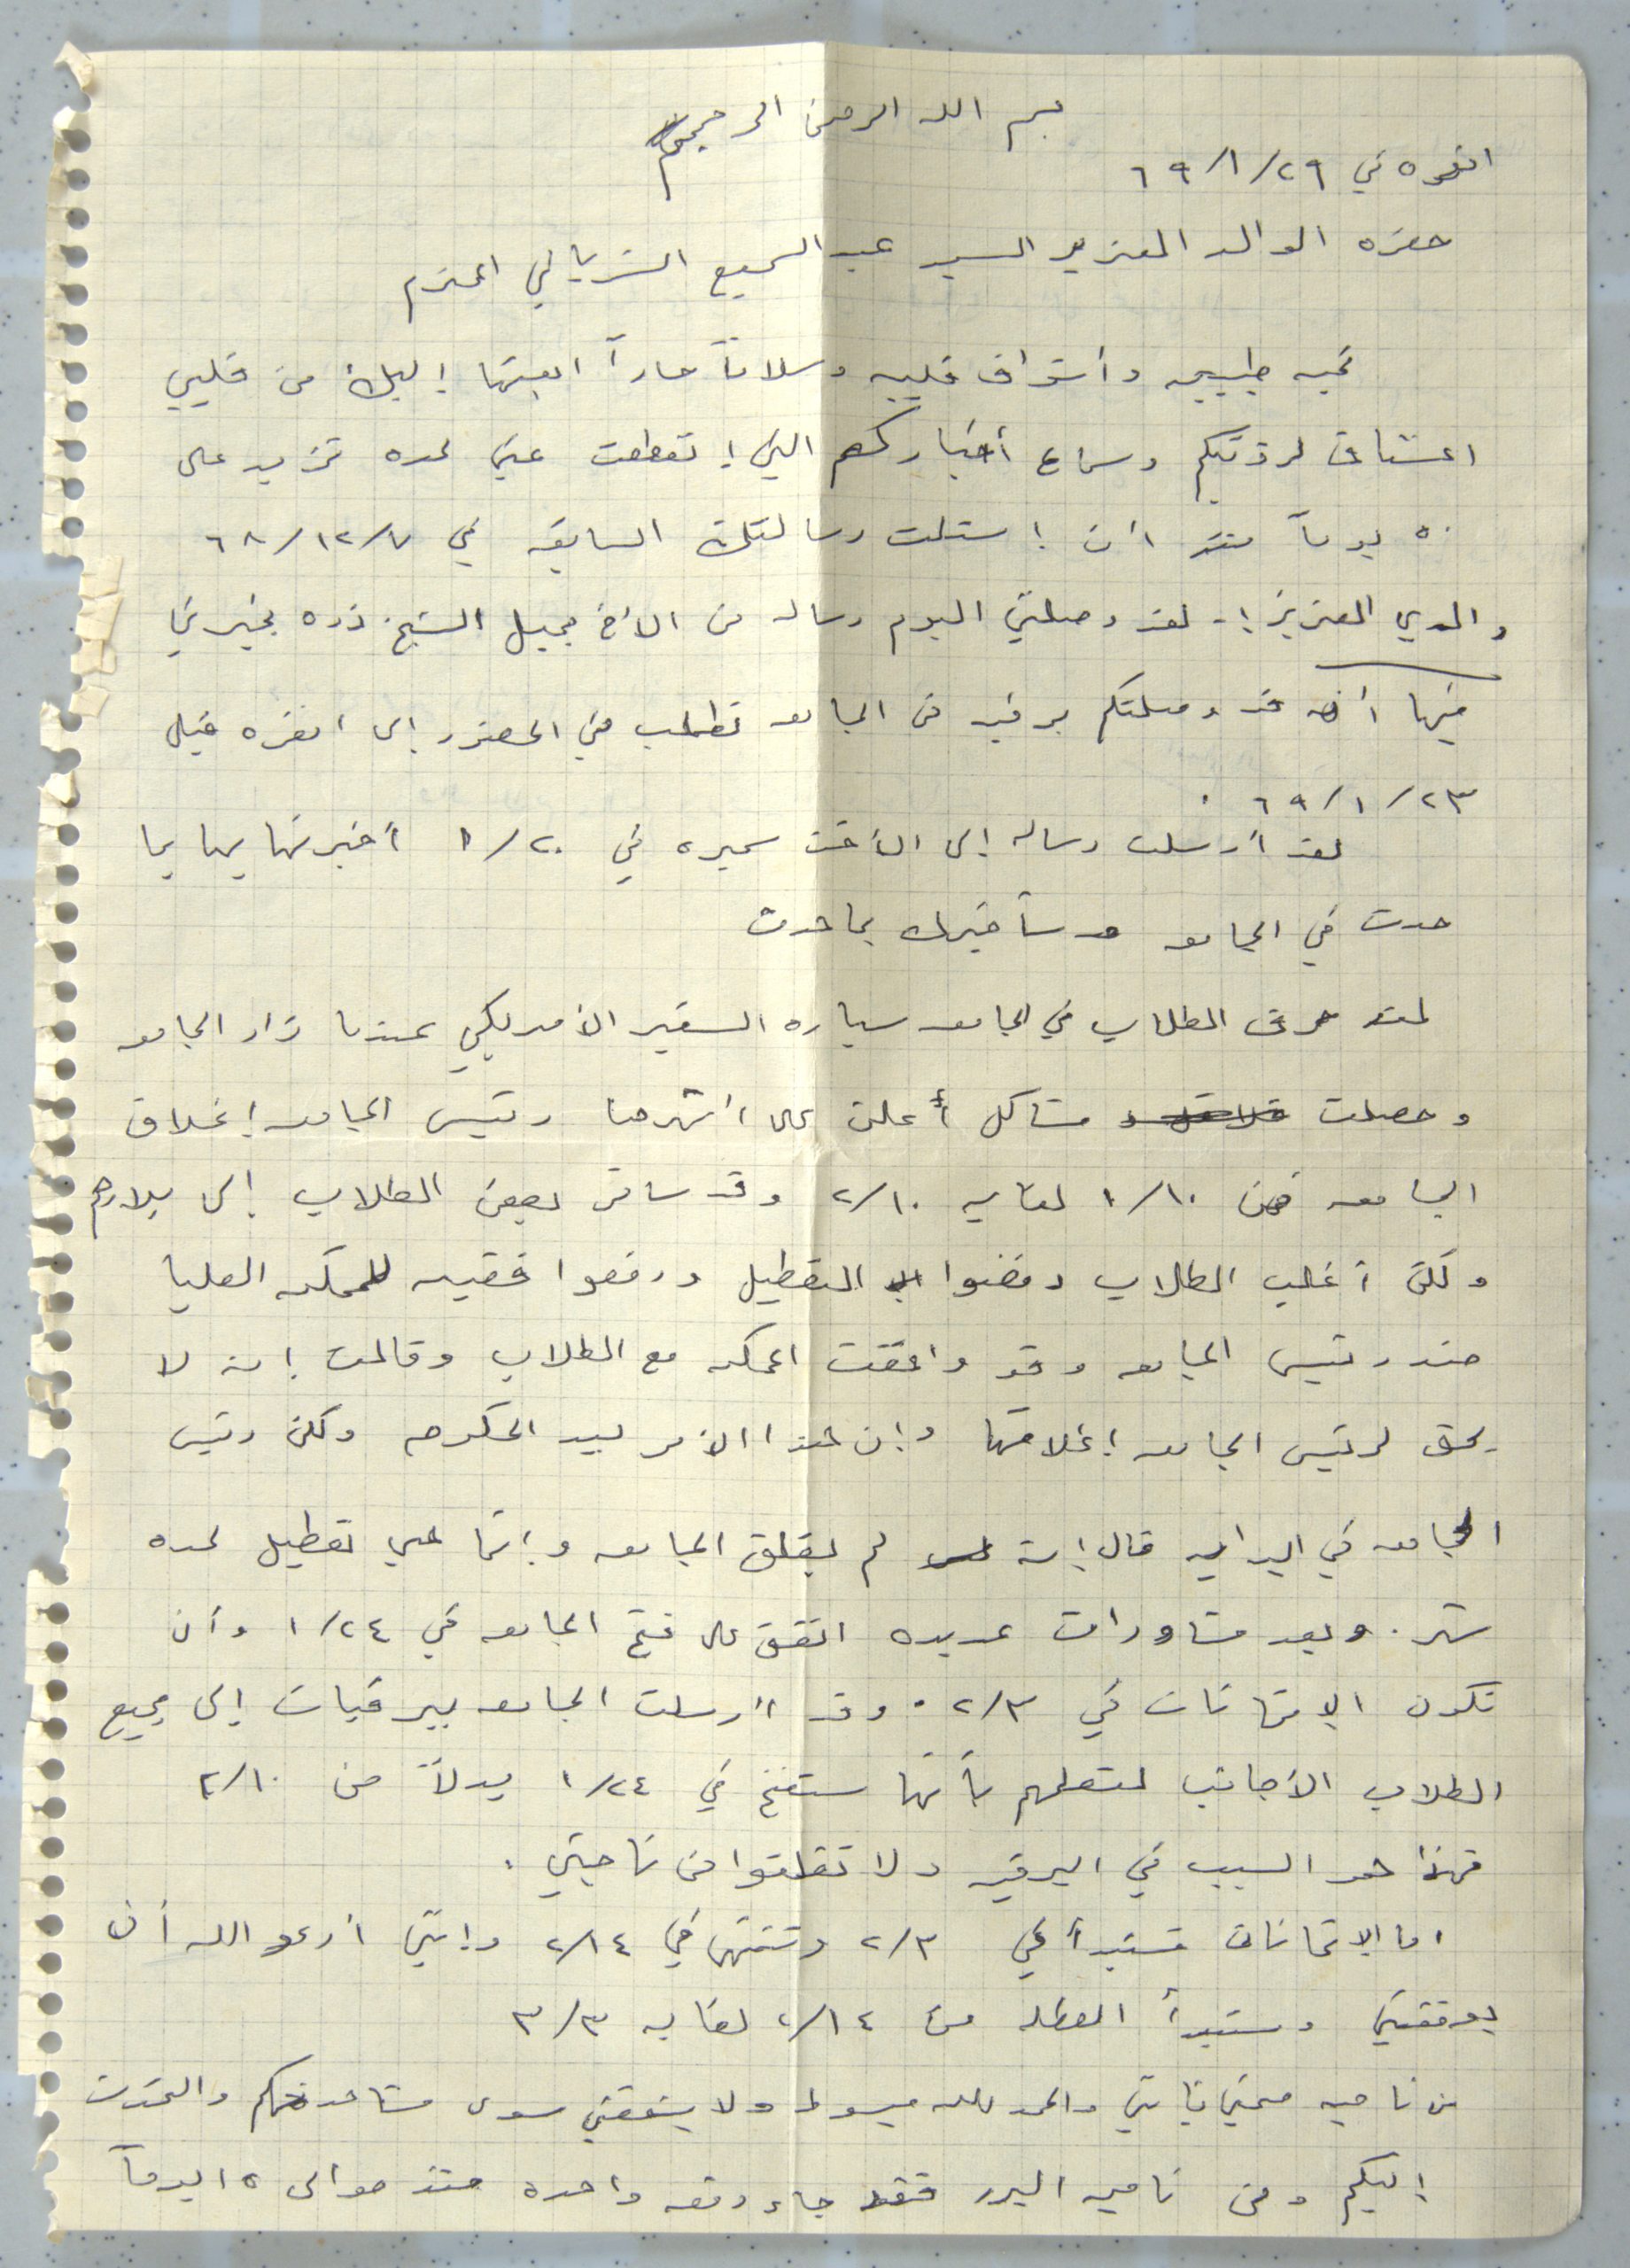 بسم الله الرحمن الرحيم
انقره في ٢٩/١/٦٩
حضره الوالد العزيز السيد عبد السميع الشريالي المحترم
تحيه طيبيه وأشواق قلبيه وسلاماً حاراً ابعثها إليك من قلبي
المشتاق لرؤيتكم وسماع أخباركم التي إنقطعت عني لمده تزيد على
٥٠ يوماً منذ أن إستلمت رسالتك السابقه في ٧/١٢/٦٨
والدي العزيز :- لقد وصلتني اليوم رساله من الأخ جميل الشيخ زوده يخبرني
فيها أنه قد وصلتكم برقيه من الجامعه تطلب مني الحضور إلى انقره قبل
٢٣/١/٦٩ .
لقد أرسلت رساله إلى الأخت سميره في ٢٠/١ أخبرتها بها بما
حدث في الجامعه وسأخبرك بما حدث
لقد حرق الطلاب في الجامعه سياره السفير الأمريكي عندما زار الجامعه
وحصلت مشاكل أعلن على أثرها رئيس الجامعه إغلاق
الجامعه من ١٠/١ لغايه ١٠/٢ وقد سافر بعض الطلاب إلى بلادهم
ولكن أغلب الطلاب رفضوا التعطيل ورفعوا قضيه للمحكمه العليا
ضد رئيس الجامعه وقد وافقت المحكمه مع الطلاب وقالت إنه لا
يحق لرئيس الجامعه إغلاقها وإن هذا الأمر بيد الحكومه ولكن رئيس
الجامعه في البدايه قال إنه لم يغلق الجامعه وإنما هي تعطيل لمده
شهر . وبعد مشاورات عديده اتفق على فتح الجامعه في ٢٤/١ وأن
تكون الإمتحانات في ٣/٢ . وقد أرسلت الجامعه ببرقيات إلى جميع
الطلاب الأجانب لتعلمهم بأنها ستفتح في ٢٤/١ بدلاً من ١٠/٢
فهذا هو السبب في البرقيه ولا تقلقوا من ناحيتي .
اما الإمتحانات فستبدأ في ٣/٢ وتنتهي في ١٤/٢ وإنني أدعو الله أن
يوفقني وستبدأ العطله من ١٤/٢ لغايه ٣/٣
من ناحيه صحتي فإنني والحمد لله مبسوط ولا ينقصني سوى مشاهدتكم والتحدث
إليكم ومن ناحيه البرد فقد جاء دفعه واحده منذ حوالى ١٥ يوماً